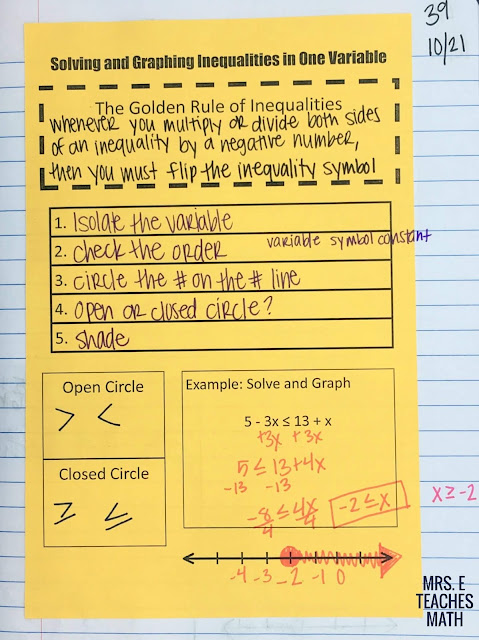 39
10/21
Solving and Graphing Inequalities in One Variable
The Golden Rule of Inequalities
whenever you multiply or divide both sides
of an inequality by a negative number,
then you must flip the inequality symbol
1. Isolate the variable
2. check the order variable symbol constant
3. circle the # on the # line
4. open or closed circle?
5. shade
Open Circle
> <
Closed Circle
≥ ≤
Example: Solve and Graph
5 - 3x ≤ 13 + x
+3x +3x
5 ≤ 13+4x
-13 -13
-8 ≤ 4x
4 4
-2 ≤ x
x ≥ -2
-4 -3 -2 -1 0
MRS. E
TEACHES
MATH